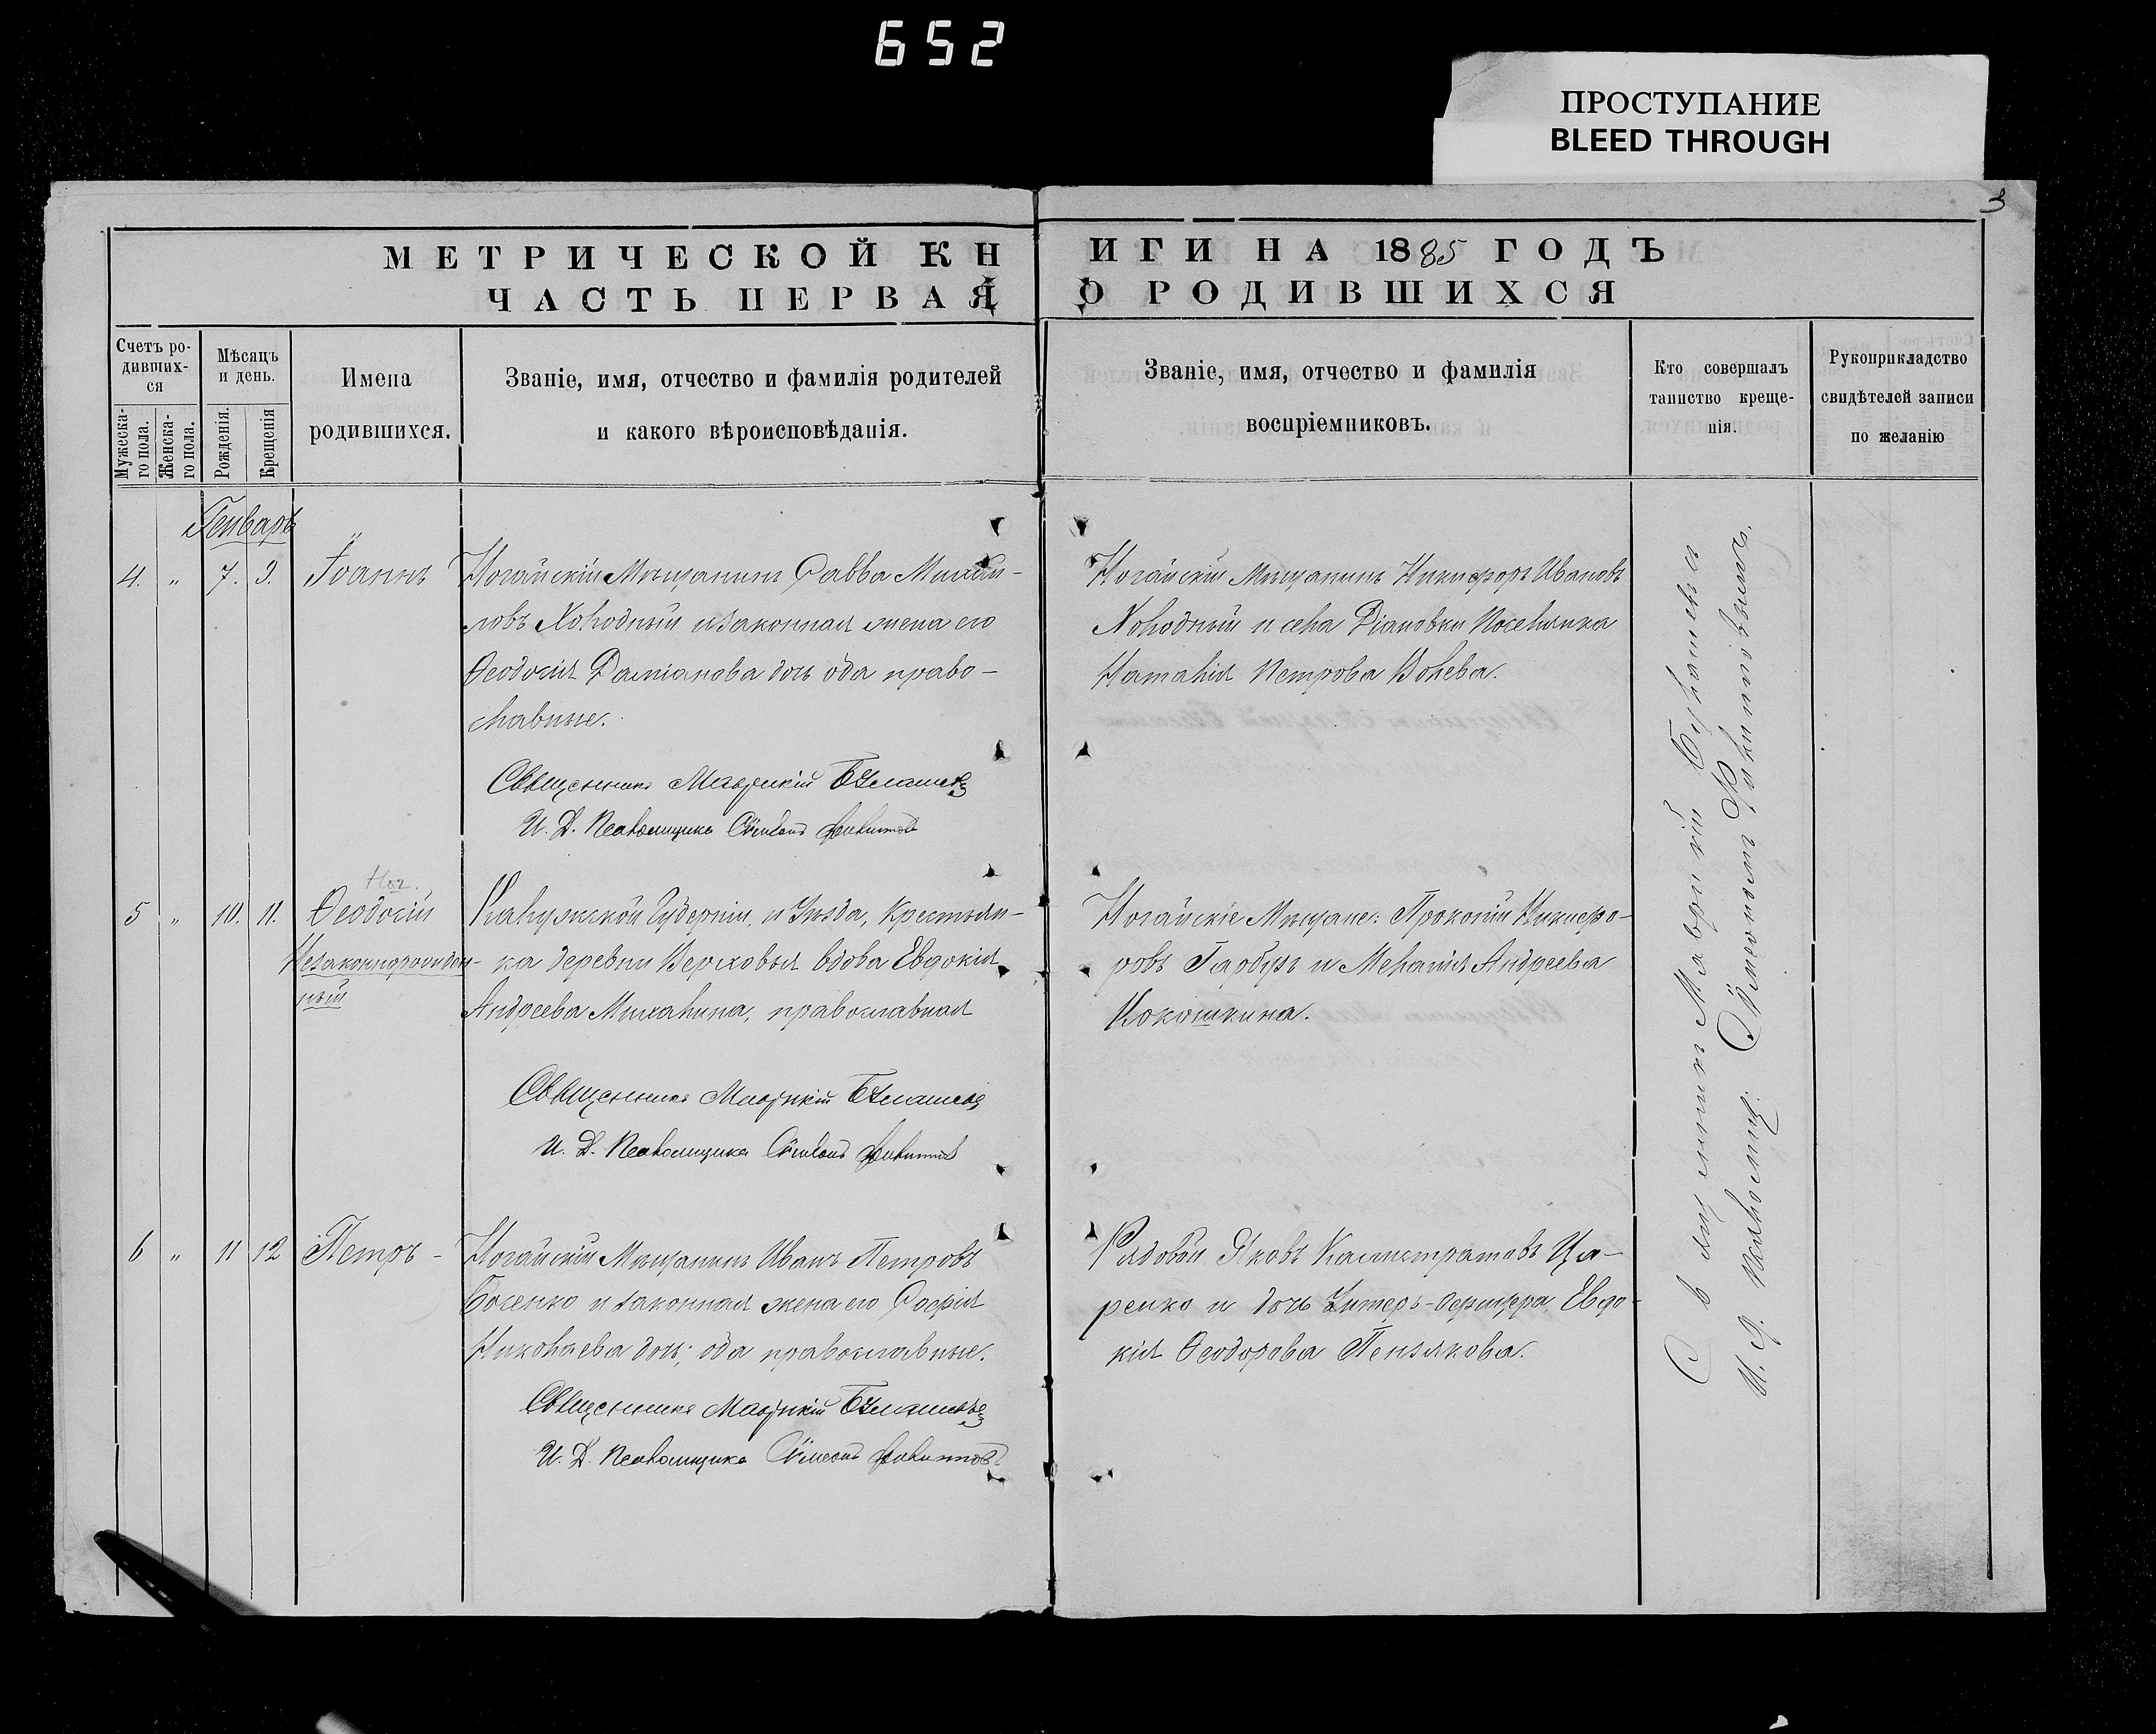 652
ПРОСТУПАНИЕ
BLEED THROUGH
3
МЕТРИЧЕСКОЙ КНИГИ НА 1885 ГОДЪ
ЧАСТЬ ПЕРВАЯ О РОДИВШИХСЯ
Счетъ родившихся
Мужескаго пола.
Женскаго пола.
Мѣсяцъ и день.
Рожденія.
Крещенія
Имена родившихся.
Званіе, имя, отчество и фамилія родителей
и какого вѣроисповѣданія.
Званіе, имя, отчество и фамилія
воспріемниковъ.
Кто совершалъ
таинство креще-
нія.
Рукоприкладство
свидѣтелей записи
по желанію
Генварь
4. " 7. 9. Іоаннъ
Ногайскій Мѣщанинъ Савва Михай-
ловъ Холодный и законная жена его
Ѳеодосія Даміанова доч. оба право-
славные.
Священникъ Маврикій
И. Д. Псаломщика Сѵмеонъ
Ногайскій Мѣщанинъ Никифоръ Ивановъ
Холодный и села Діановки Поселянка
Наталія Петрова Волева.
Ног.
5 " 10. 11. Ѳеодосій
Незаконнорожден-
ный
Калужской Губерніи, и Уѣзда, Крестьян-
ка деревни Верховья вдова Евдокія
Андреева Михалина, православная
Священникъ Маврикій
И. Д. Псаломщика Сѵмеонъ
Ногайскіе Мѣщане: Прокопій Никифо-
ровъ Гарбузъ и Меланія Андреева
Кокошкина.
6 " 11 12 Петръ -
Ногайскій Мѣщанинъ Иванъ Петровъ
Босенко и законная жена его Софія
Николаева доч; оба православные.
Священникъ Маврикій
И. Д. Псаломщика Сѵмеонъ
Рядовой Яковъ Каллистратовъ Ца-
ренко и дочь Унтеръ-Офицера Евдо-
кія Ѳеодорова Пензякова.
Священникъ Маврикій
И. д. Псаломщ: Сѵмеономъ